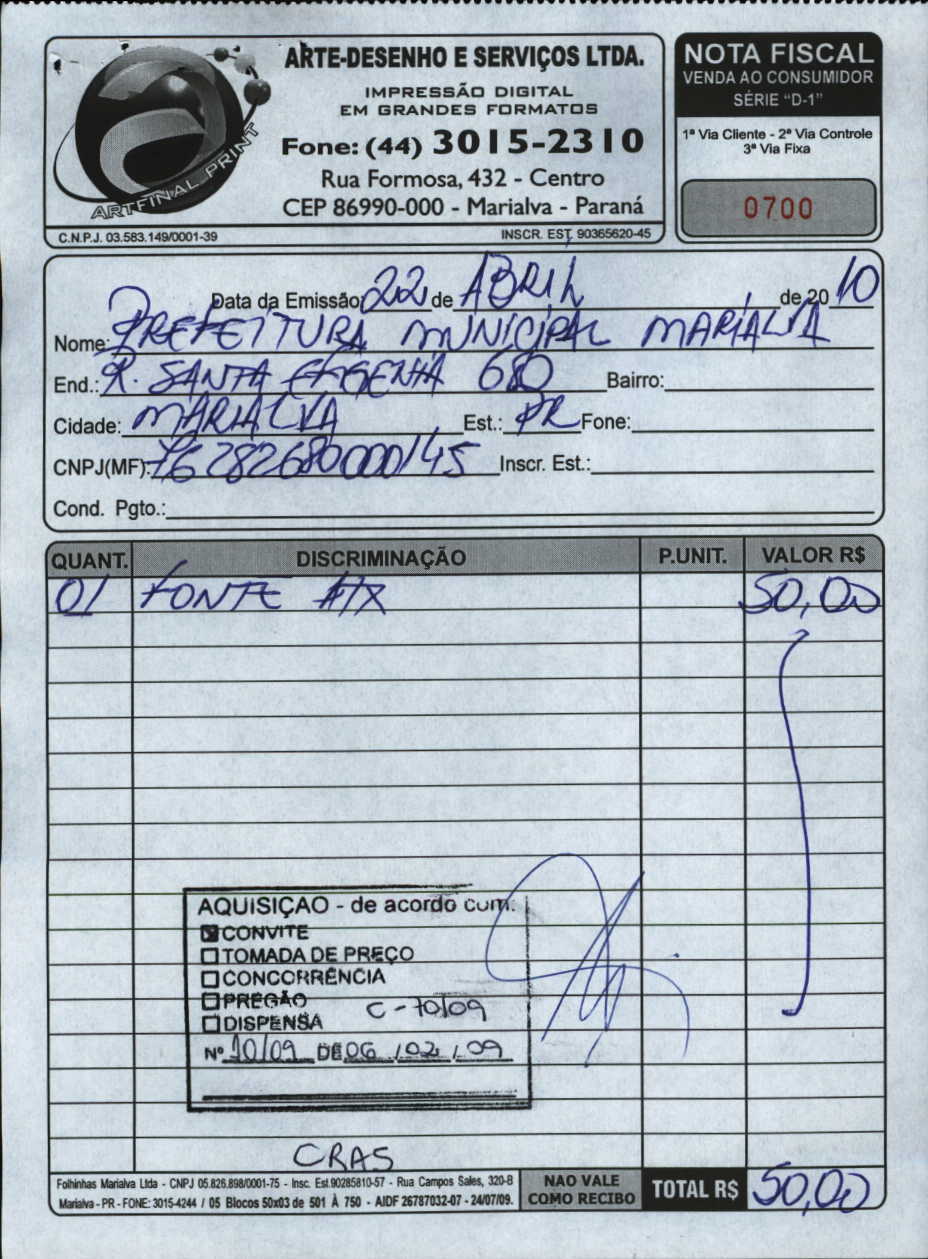 ARTE-DESENHO E SERVIÇOS LTDA.
IMPRESSÃO DIGITAL
EM GRANDES FORMATOS
Fone: (44) 3015-2310
Rua Formosa, 432 - Centro
CEP 86990-000 - Marialva - Paraná
ARTFINAL PRINT
C.N.P.J. 03.583.149/0001-39 INSCR. EST. 90365620-45
NOTA FISCAL
VENDA AO CONSUMIDOR
SÉRIE "D-1"
1ª Via Cliente - 2ª Via Controle
3ª Via Fixa
0700
Data da Emissão 22 de ABRIL de 20 10
Nome: PREFEITURA MUNICIPAL MARIALVA
End.: R. SANTA EFIGENIA 680 Bairro:
Cidade: MARIALVA Est.: PR Fone:
CNPJ(MF): 76282680000/45 Inscr. Est.:
Cond. Pgto.:
QUANT. DISCRIMINAÇÃO P.UNIT. VALOR R$
01 FONTE ATX 50,00
AQUISIÇAO - de acordo com:
CONVITE
TOMADA DE PREÇO
CONCORRÊNCIA
PREGÃO
DISPENSA C-70/09
Nº 10/09 DE 06 / 02 / 09
CRAS
Folhinhas Marialva Ltda - CNPJ 05.826.898/0001-75 - Insc. Est.90285810-57 - Rua Campos Sales, 320-B
Marialva - PR - FONE: 3015-4244 / 05 Blocos 50x03 de 501 À 750 - AIDF 26787032-07 - 24/07/09.
NAO VALE
COMO RECIBO
TOTAL R$ 50,00